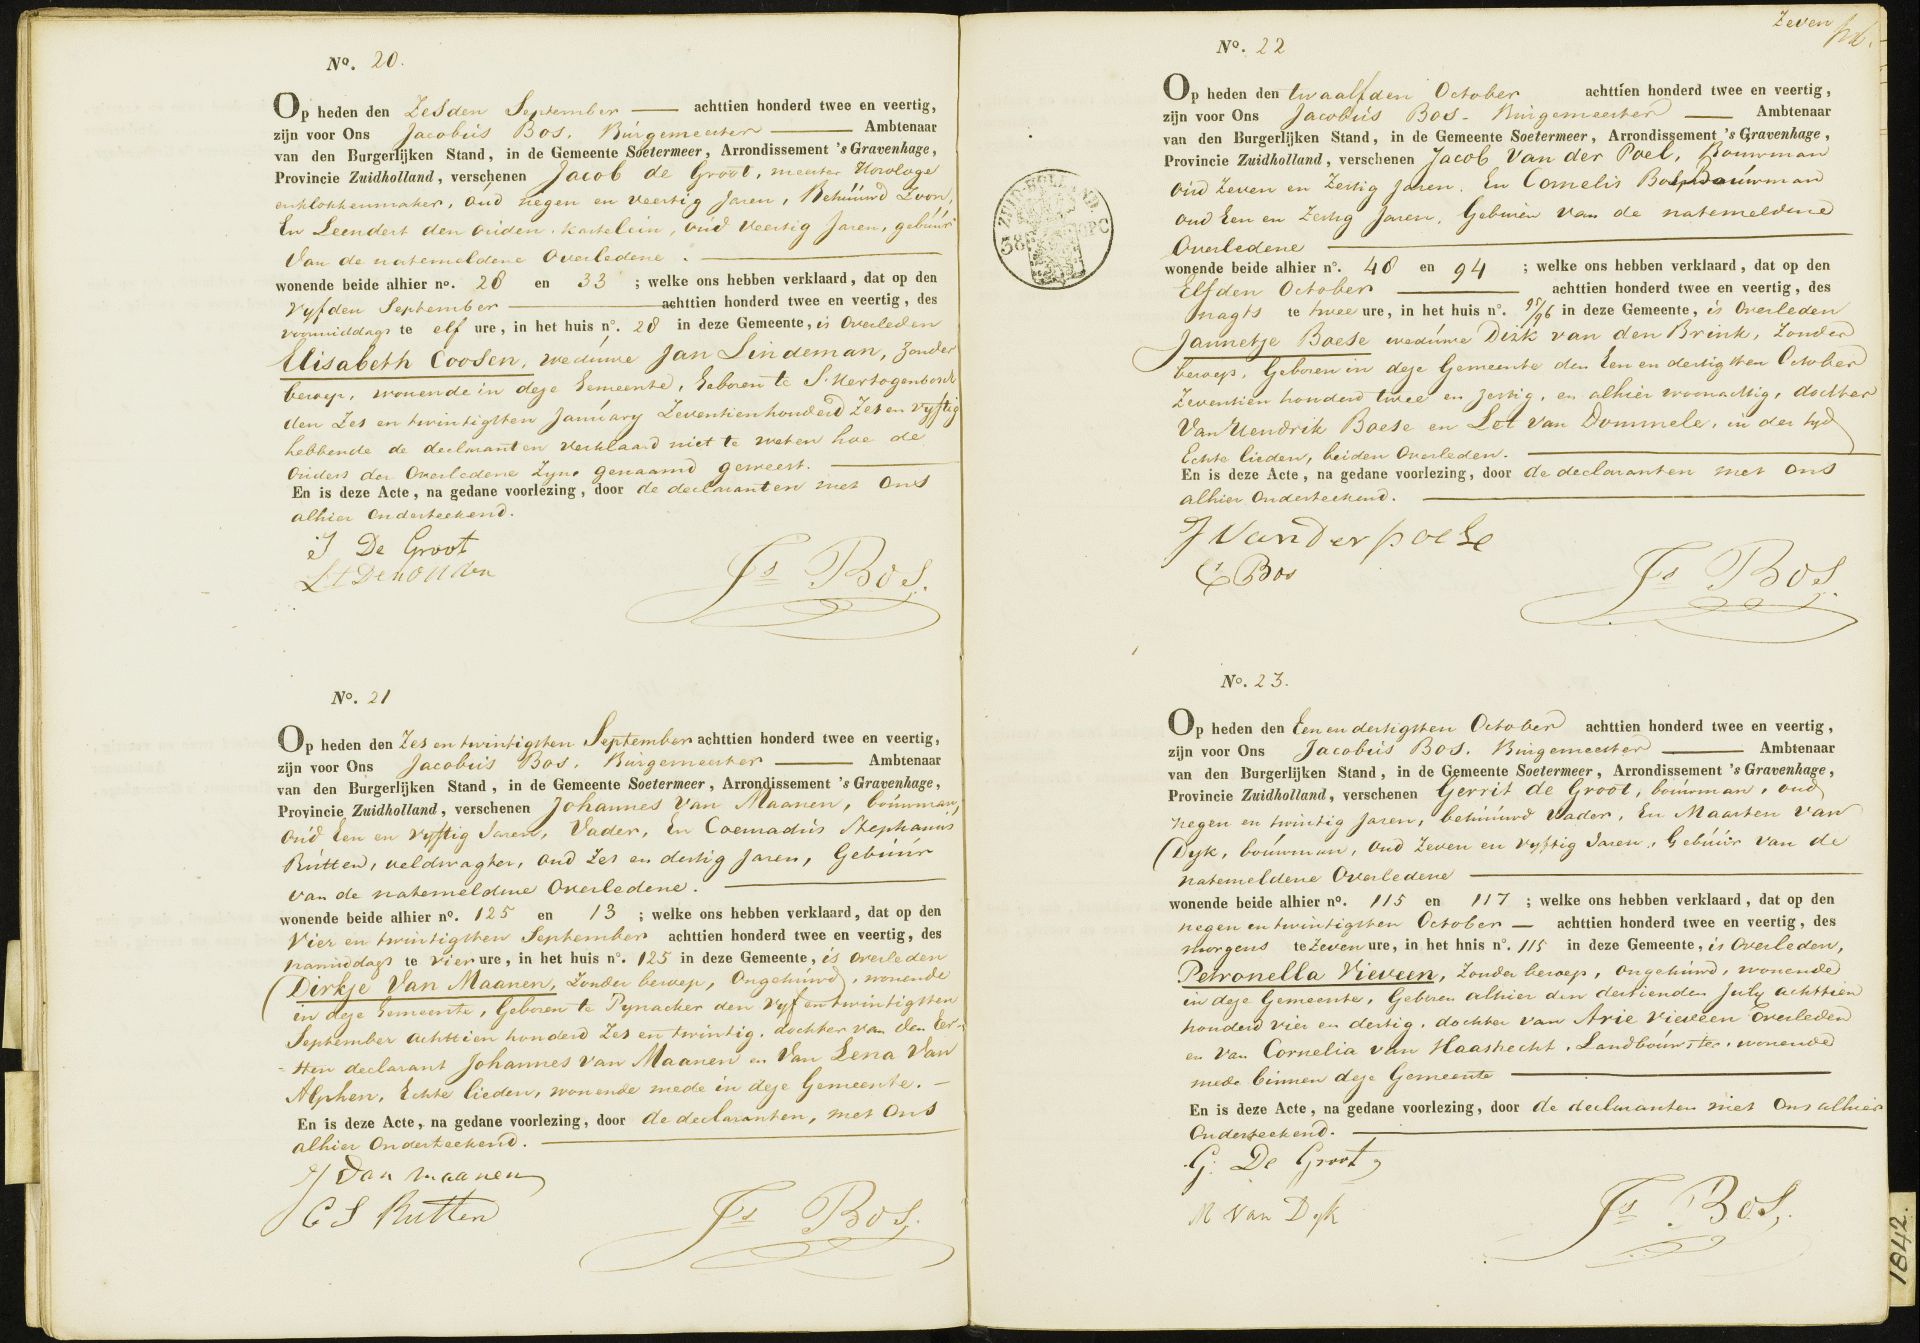 No. 20.
Op heden den Zesden September achttien honderd twee en veertig,
zijn voor Ons Jacobus Bos, Burgemeester Ambtenaar
van den Burgerlijken Stand, in de Gemeente Soetermeer, Arrondissement 's Gravenhage,
Provincie Zuidholland, verschenen Jacob de Groot, meester Horologe
enklokkenmaker, oud negen en veertig Jaren, Behuuwd Zoon,
En Leendert den ouden, kastelein, oud veertig Jaren, gebuur
van de natemeldene Overledene.
wonende beide alhier no. 28 en 33; welke ons hebben verklaard, dat op den
Vyfden September achttien honderd twee en veertig, des
voormiddags te elf ure, in het huis no. 28 in deze Gemeente, is Overleden
Elisabeth Coosen, weduwe Jan Lindeman, Zonder
beroep, wonende in deze Gemeente, Geboren te S'Hertogenbosch
den Zes en twintigsten January Zeventienhonderd Zes en vyftig
hebbende de declaranten verklaard niet te weten hoe de
Ouders der Overledene Zyn genaamd geweest.
En is deze Acte, na gedane voorlezing, door de declaranten met Ons
alhier Onderteekend.
J De Groot
Js Bos.
No. 21
Op heden den Zes en twintigsten September achttien honderd twee en veertig,
zijn voor Ons Jacobus Bos, Burgemeester Ambtenaar
van den Burgerlijken Stand, in de Gemeente Soetermeer, Arrondissement 's Gravenhage,
Provincie Zuidholland, verschenen Johannes Van Maanen, bouwman,
Oud Een en vyftig Jaren, Vader, En Coenradus Stephanus
Rutten, veldwagter, oud Zes en dertig Jaren, Gebuur
van de natemeldene Overledene.
wonende beide alhier no. 125 en 13; welke ons hebben verklaard, dat op den
Vier en twintigsten September achttien honderd twee en veertig, des
namiddags te vier ure, in het huis no. 125 in deze Gemeente, is Overleden
Dirkje Van Maanen, Zonder beroep, Ongehuwd, wonende
in deze Gemeente, Geboren te Pynacker den vyf en twintigsten
September achttien honderd Zes en twintig, dochter van den Eer-
=sten declarant Johannes van Maanen en Van Lena Van
Alphen, Echte lieden, wonende mede in deze Gemeente.
En is deze Acte, na gedane voorlezing, door de declaranten, met Ons
alhier Onderteekend.
J Van Maanen
C S Rutten
Js Bos.
Zeven
No. 22
Op heden den twaalfden October achttien honderd twee en veertig,
zijn voor Ons Jacobus Bos, Burgemeester Ambtenaar
van den Burgerlijken Stand, in de Gemeente Soetermeer, Arrondissement 's Gravenhage,
Provincie Zuidholland, verschenen Jacob Van der Poel, Bouwman
oud Zeven en Zestig Jaren. En Cornelis Bos Bouwman
oud Een en Zestig Jaren, Geburen van de natemeldene
Overledene
wonende beide alhier no. 48 en 94; welke ons hebben verklaard, dat op den
Elfden October achttien honderd twee en veertig, des
nagts te twee ure, in het huis no. 95/96 in deze Gemeente, is Overleden
Jannetje Boese weduwe Dirk van den Brink, Zonder
beroep, Geboren in deze Gemeente den Een en dertigsten October
Zeventien honderd twee en Zestig, en alhier woonachtig, dochter
Van Hendrik Boese en Lot van Dommele, in der tyd
Echte lieden, beiden Overleden.
En is deze Acte, na gedane voorlezing, door de declaranten met Ons
alhier Onderteekend.
J Van Der poele
C Bos
Js Bos.
ZUID-HOLLAND
38 OPC
No. 23.
Op heden den Een en dertigsten October achttien honderd twee en veertig,
zijn voor Ons Jacobus Bos, Burgemeester Ambtenaar
van den Burgerlijken Stand, in de Gemeente Soetermeer, Arrondissement 's Gravenhage,
Provincie Zuidholland, verschenen Gerrit de Groot, bouwman, oud
negen en twintig Jaren, behuuwd Vader, En Maarten Van
Dyk, bouwman, Oud Zeven en vyftig Jaren, Gebuur van de
natemeldene Overledene
wonende beide alhier no. 115 en 117; welke ons hebben verklaard, dat op den
negen en twintigsten October achttien honderd twee en veertig, des
morgens te Zeven ure, in het hnis no. 115 in deze Gemeente, is Overleden,
Petronella Vieveen, Zonder beroep, ongehuwd, wonende
in deze Gemeente, Geboren alhier den dertienden July achttien
honderd vier en dertig, dochter van Arie Vieveen Overleden
en Van Cornelia van Haastrecht, Landbouwster, wonende
mede binnen deze Gemeente
En is deze Acte, na gedane voorlezing, door de declaranten met Ons alhier
Onderteekend.
G: De Groot
M Van Dyk
Js Bos.
1842.